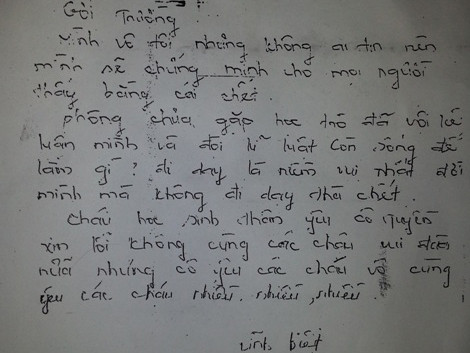 Gởi Trường
mình vô tội nhưng không ai tin nên
mình sẽ chứng minh cho mọi người
thấy bằng cái chết.
phòng chưa gặp học trò đã vội kế
luận mình và đòi kỉ luật còn sống để
làm gì? đi dạy là niềm vui nhất đời
mình mà không đi dạy thà chết.
cháu học sinh thân yêu cô
xin lỗi không cùng các cháu vui đùa
nữa nhưng cô yêu các cháu vô cùng
yêu các cháu nhiều. nhiều, nhiều.
vĩnh biệt